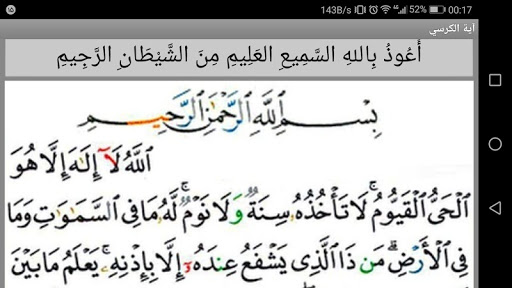 143B/s 52% 00:17
آية الكرسي
أَعُوذُ بِاللهِ السَّمِيعِ العَلِيمِ مِنَ الشَّيْطَانِ الرَّجِيمِ
بِسْمِ اللَّهِ الرَّحْمَٰنِ الرَّحِيمِ
اللَّهُ لَآ إِلَٰهَ إِلَّا هُوَ
الْحَيُّ الْقَيُّومُ ۚ لَا تَأْخُذُهُ سِنَةٌ وَلَا نَوْمٌ ۚ لَّهُ مَا فِي السَّمَٰوَٰتِ وَمَا
فِي الْأَرْضِ ۗ مَن ذَا الَّذِي يَشْفَعُ عِندَهُ إِلَّا بِإِذْنِهِ ۚ يَعْلَمُ مَا بَيْنَ